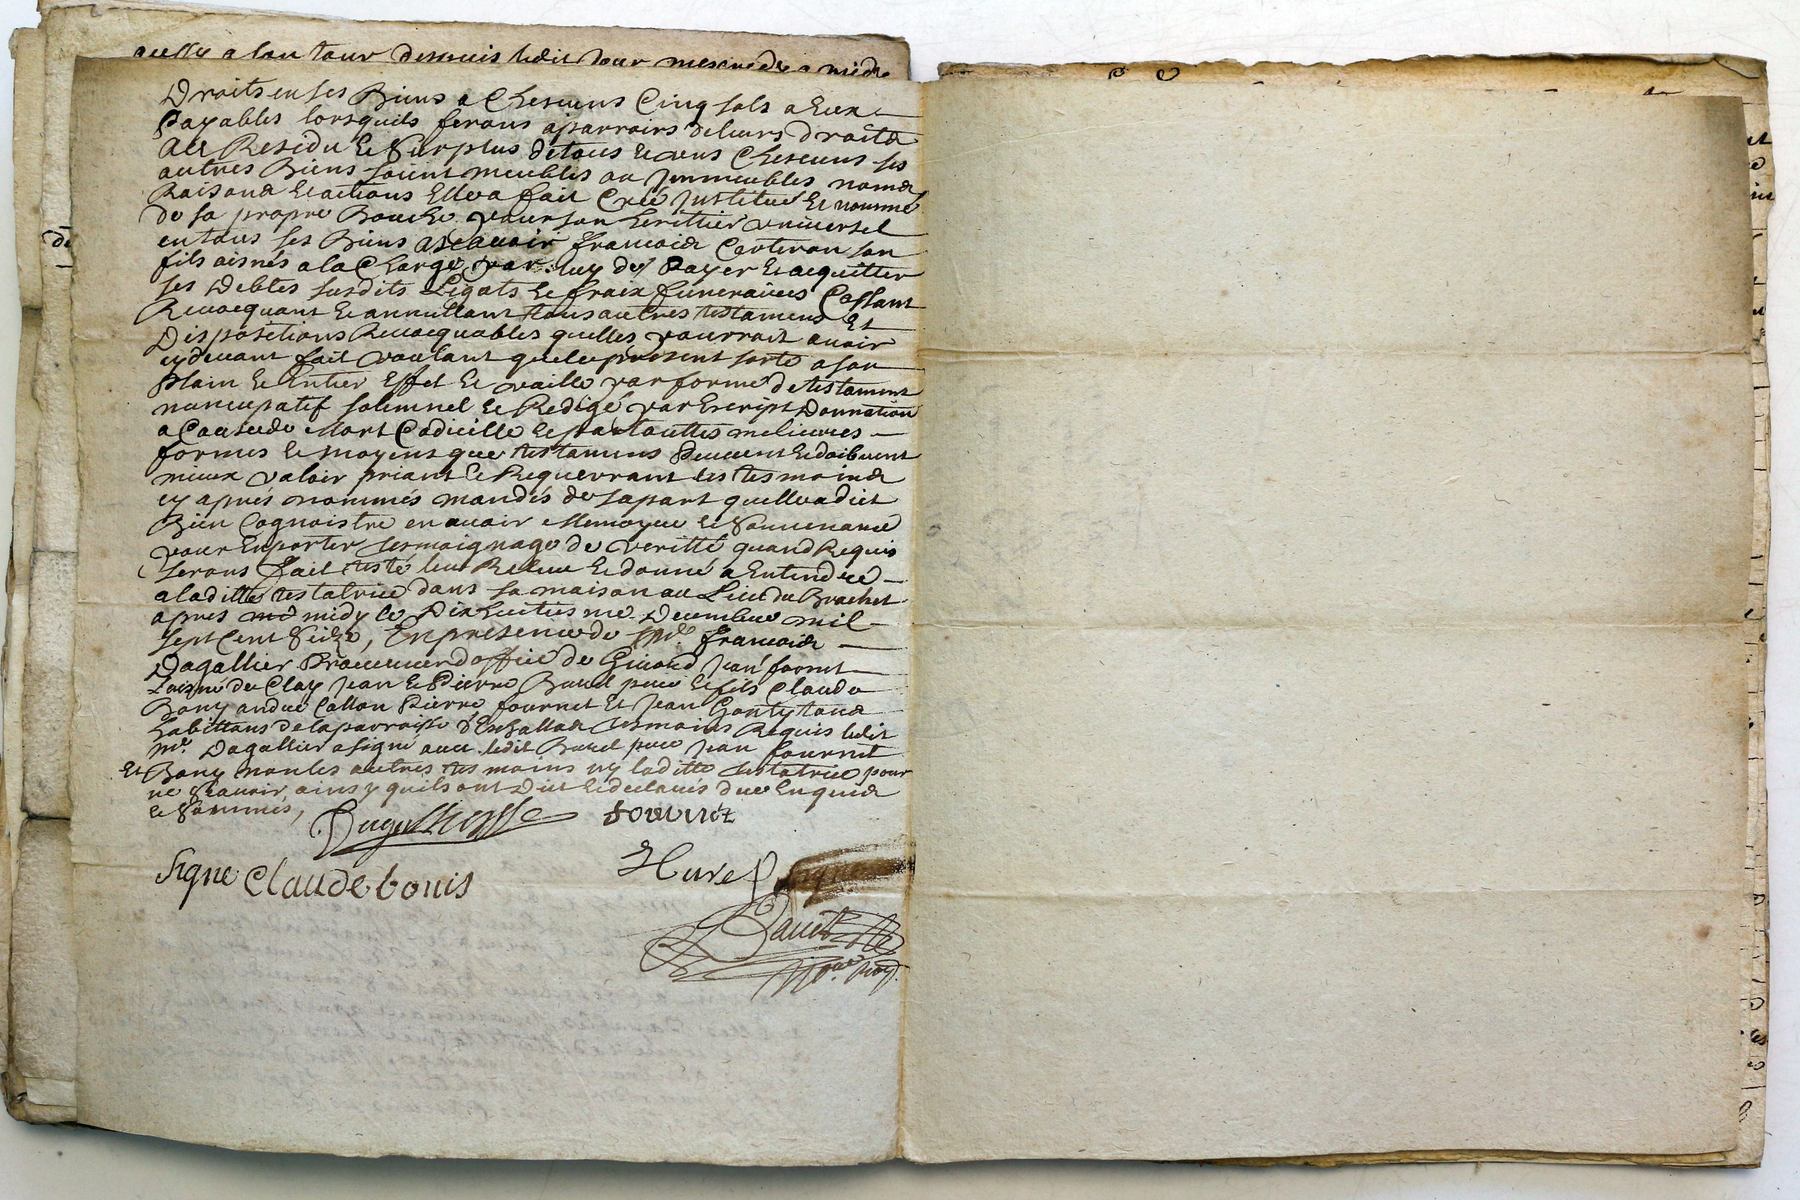 a son tour despuis ledit jour mescredy a midy
Droits en ses Biens a Chescuns Cinq sols a Eux
Payables lorsquils feront aparroirs de leurs droits
Au Residu & Surplus de tous & uns Chescuns ses
autres Biens soient meubles ou Jmmeubles noms
Raisons et actions Elle a fait Créé Jnstitué Et nommé
de sa propre Bouche pour son heritier universel
en tous ses Biens ascavoir francois Conteron son
fils aisnés a la Charge par luy de Payer Et acquitter
ses Debtes susdits Légats & fraix funeraires Cassant
Revocquant & annullant tous autres testamens Et
Dispositions Revocquables quelles pourroit avoir
cydevant fait voulant que le présent sorte a son
Plain & Entier Effet & vaille par forme de testament
noncupatif solemnel & Redigé par Escript Donnation
a Cause de Mort Codicille & par touttes melieures
formes & moyens que testamens Peuvent & doibvent
mieux valoir priant & Requerrant les tesmoins
cy après nommés mandés de sa part quelle a dict
Bien Cognoistre en avoir Memoyre & Souvenance
pour En porter tesmoignage de veritté quand Requis
seront fait testé leu Releue & donné a Entendre
a laditte testatrice dans sa maison au Lieu du Brachet
apres midy le Dixhuitiesme Decembre mil
sept Cent Seize, En presence de Me francois
Dagallier Procureur doffice de Jean fornet
Laisné du Clay Jean & Pierre Burel pere & fils Claude
Bony andre Callon Pierre fournet Et Jean
habittans de la parroisse tesmoins Requis ledit
Mr Dagallier a signé avec ledit Burel pere Jean fournet
Et Bony non les autres tesmoins ny laditte testatrice pour
ne Scavoir ainsy quils ont Dict & declarés due Enquis
& Sommés,
fournet
signe Claude bonis
Burel